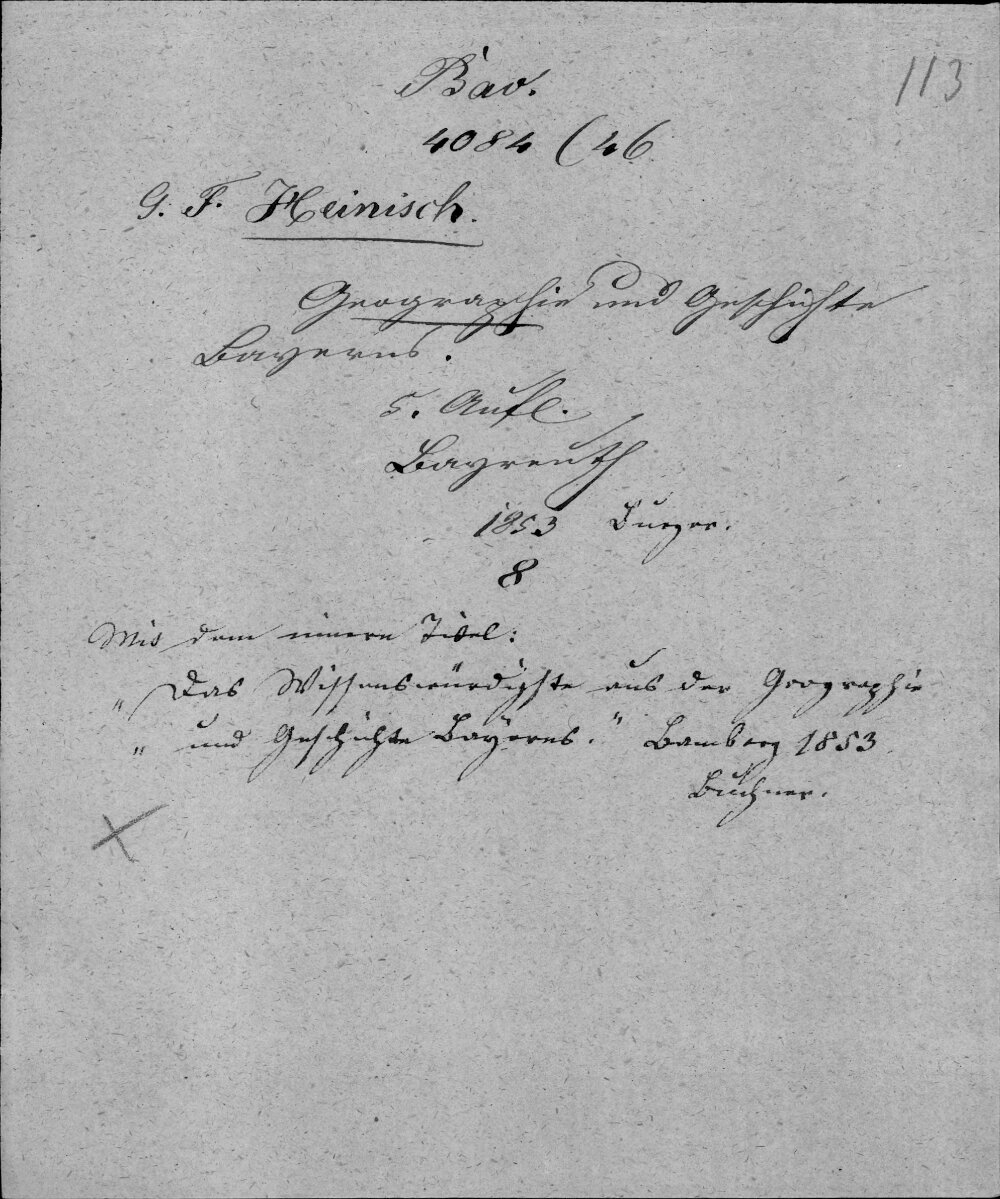 113
Bav.
4084 (46
G. F. Heinisch.
Geographie und Geschichte
Bayerns.
5. Aufl.
Bayreuth
1853 Burger.
8
Mit dem innern Titel:
„ Das Wissenswürdigste aus der Geographie
„ und Geschichte Bayerns." Bamberg 1853
Buchner.